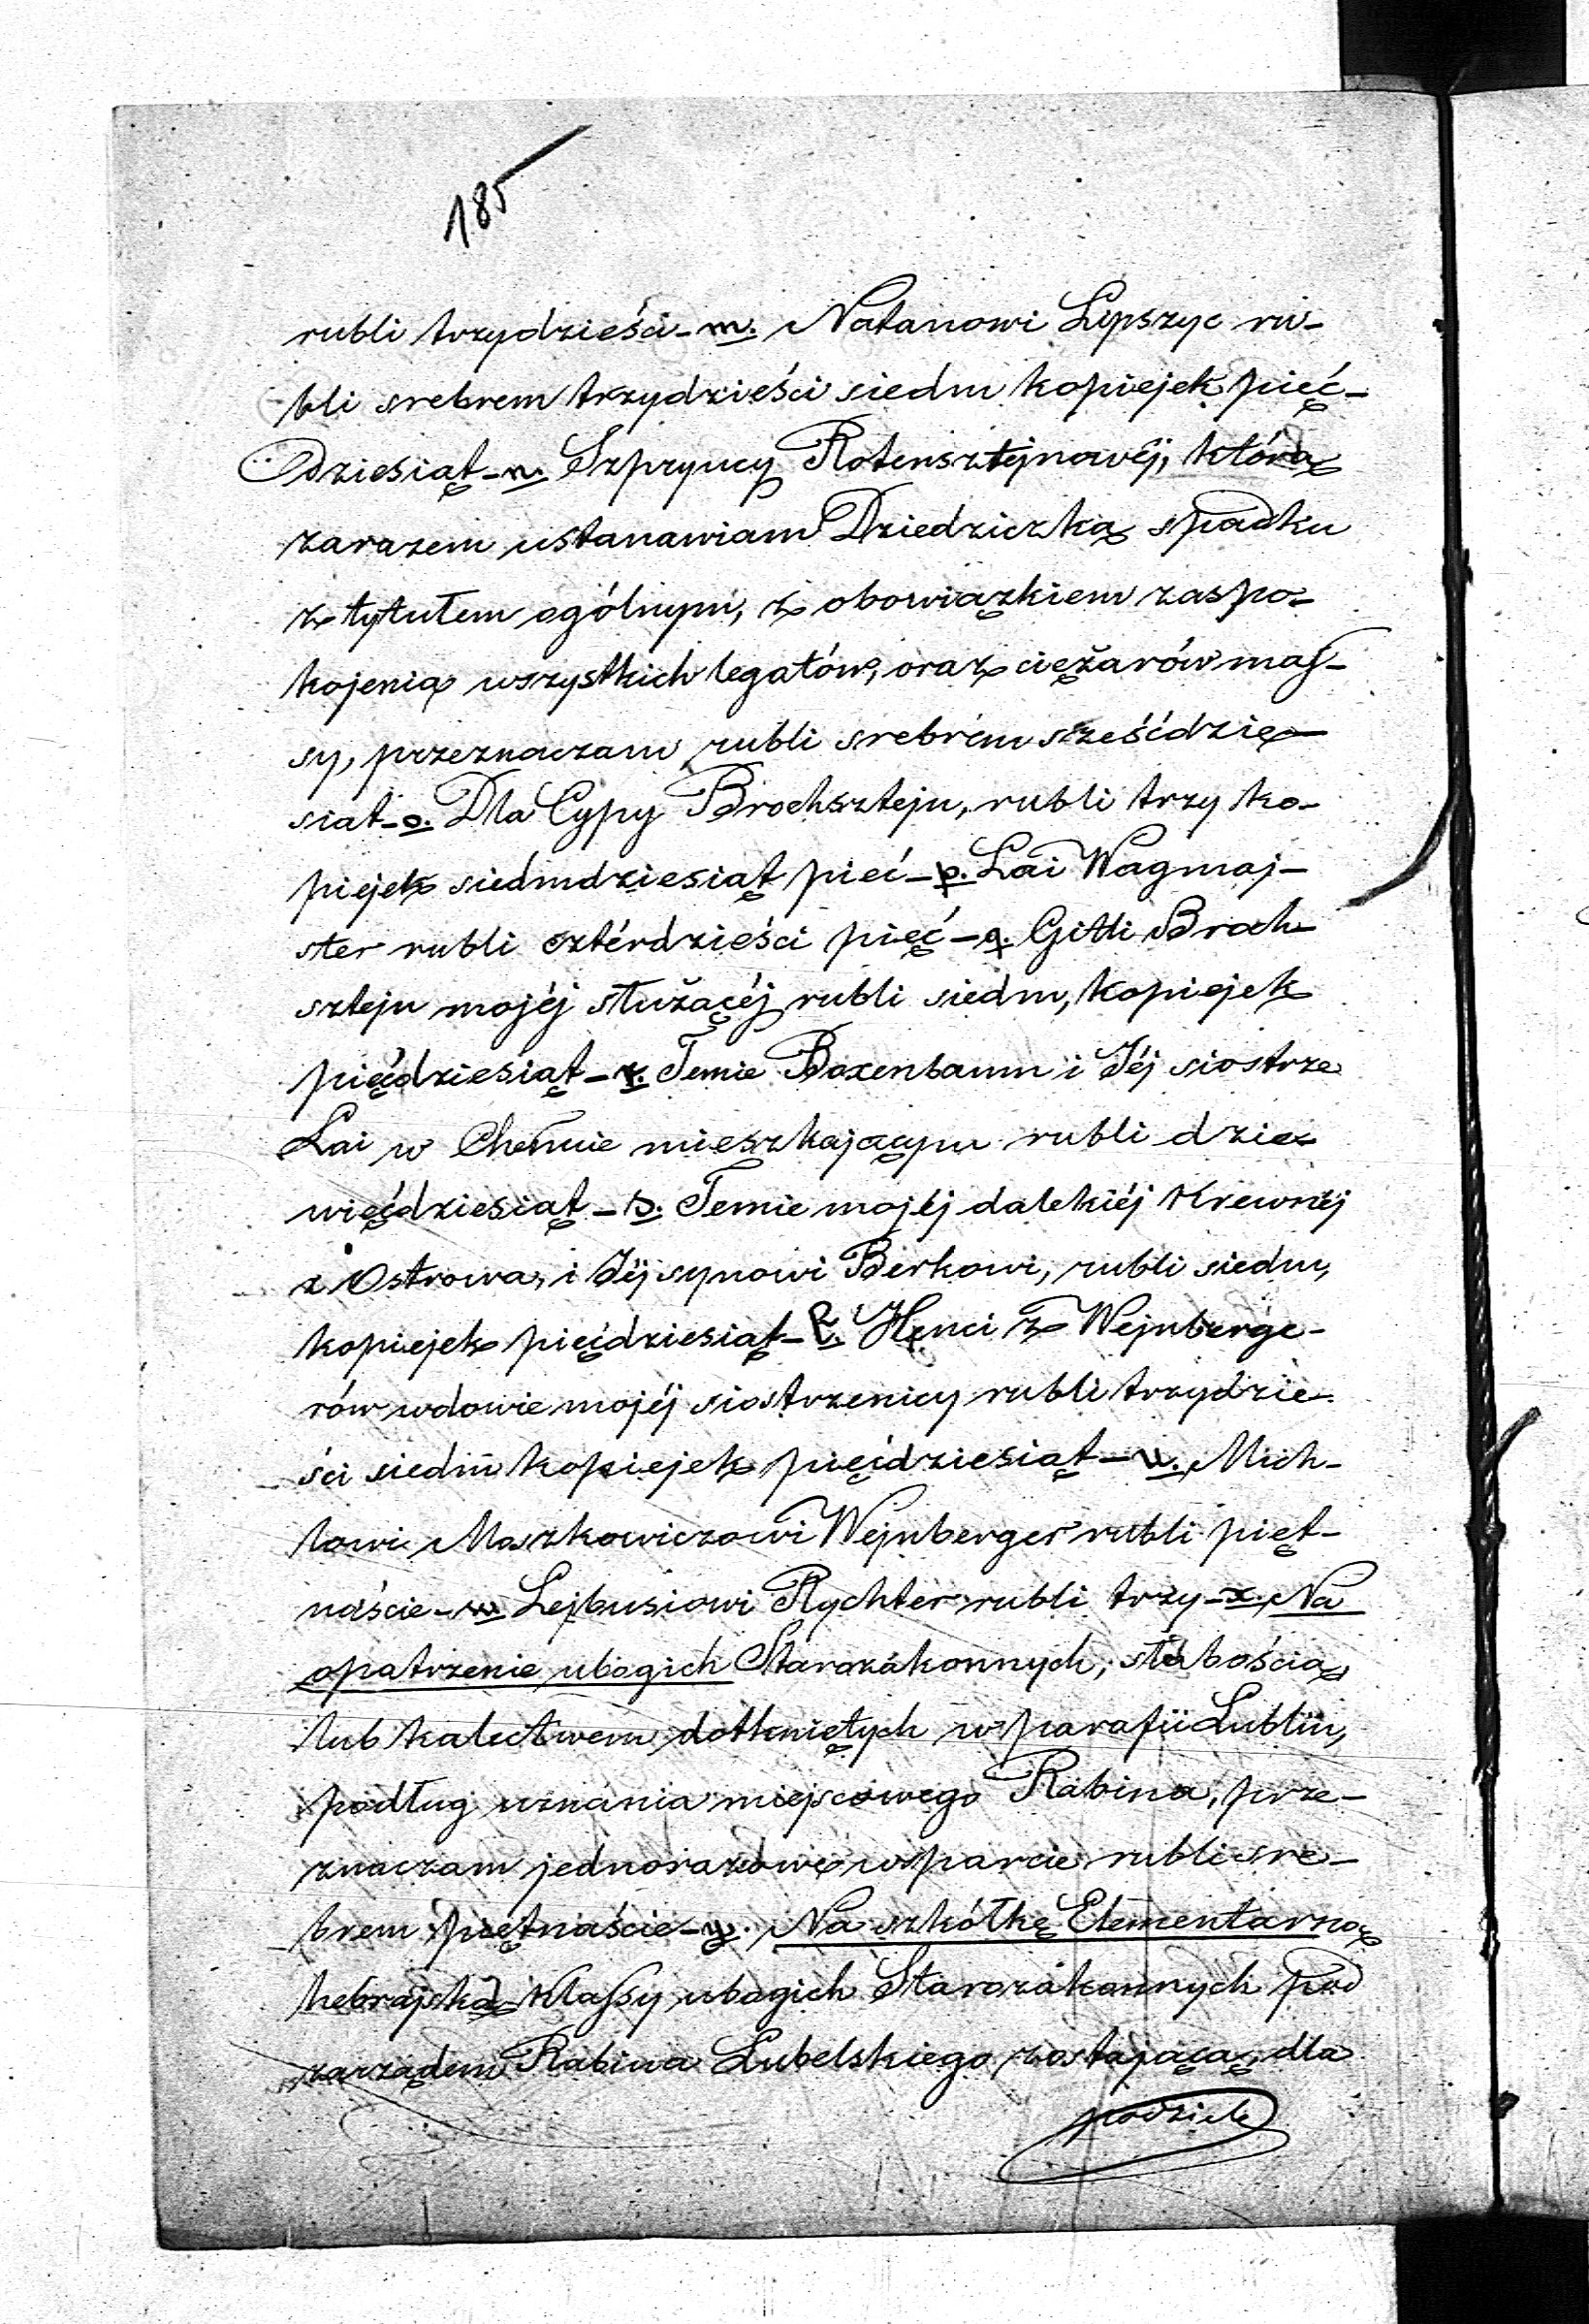 185
rubli trzydzieści – m. Natanowi Lipszyc ru-
bli srebrem trzydzieści siedm kopiejek pięć-
dziesiąt – n. Szpryncy Rotensztejnowéj, którą
zarazem ustanawiam Dziedziczką spadku
z tytułem ogólnym, z obowiązkiem zaspo-
kojenia wszystkich legatów, oraz ciężarów mas-
sy, przeznaczam rubli srebrem sześćdzie-
siat – o. Dla Cypy Brochsztejn, rubli trzy ko-
piejek siedmdziesiąt pieć – p. Lai Wagmaj-
ster rubli cztérdzieści pięć – q. Gitli Broch-
sztejn mojéj służącéj rubli siedm, kopiejek
pięćdziesiąt – r. Temie Boxenbaum i Jéj siostrze
Lai w Chełmie mieszkającym rubli dzie-
więćdziesiąt – s. Temie mojéj dalekiéj Krewnéj
z Ostrowa, i Jéj synowi Berkowi, rubli siedm,
kopiejek pięćdziesiąt – t. Henci z Wejnberge-
rów wdowie mojéj siostrzenicy rubli trzydzie-
ści siedm kopiejek pięćdziesiąt – u. Mich-
lowi Moszkowiczowi Wejnberger rubli pięt-
naście – w. Lejbusiowi Rychter rubli trzy – x. Na
opatrzenie ubogich Starozakonnych, słabością
lub kalectwem dotkniętych w parafii Lublin,
podług uznania miejscowego Rabina, prze-
znaczam jednorazowe wsparcie rubli sre-
brem piętnaście – y. Na szkółkę Elementarną
hebrajską Klassy ubogich Starozakonnych pod
zarządem Rabina Lubelskiego zostającą, dla
podziele